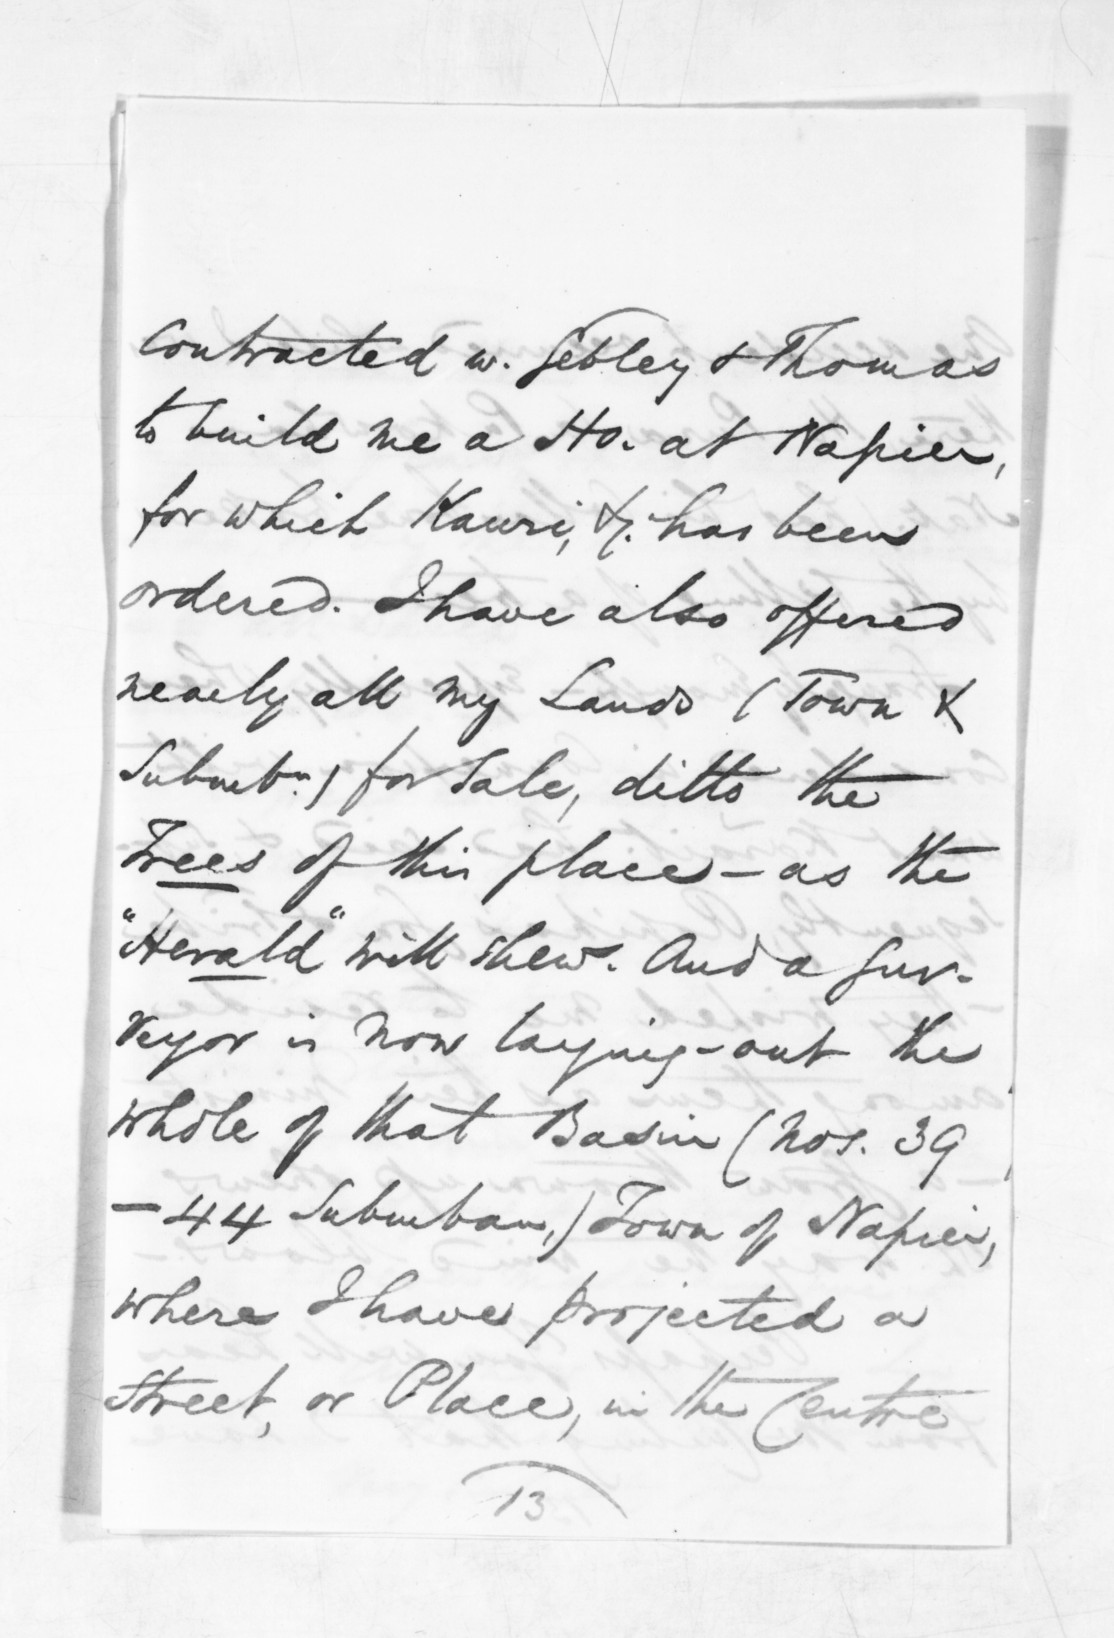 Contracted w. Sebley & Thomas
to build me a Ho. at Napier,
for which Kauri, &c. has been
ordered. I have also offered
nearly all my Lands (Town &
Suburbn.) for Sale, ditto the
Trees of this place – as the
"Herald" will shew. And a Sur-
veyor is now laying-out the
whole of that Basin (Nos. 39
– 44 Suburban,) Town of Napier,
where I have projected a
Street, or Place, in the Centre
13